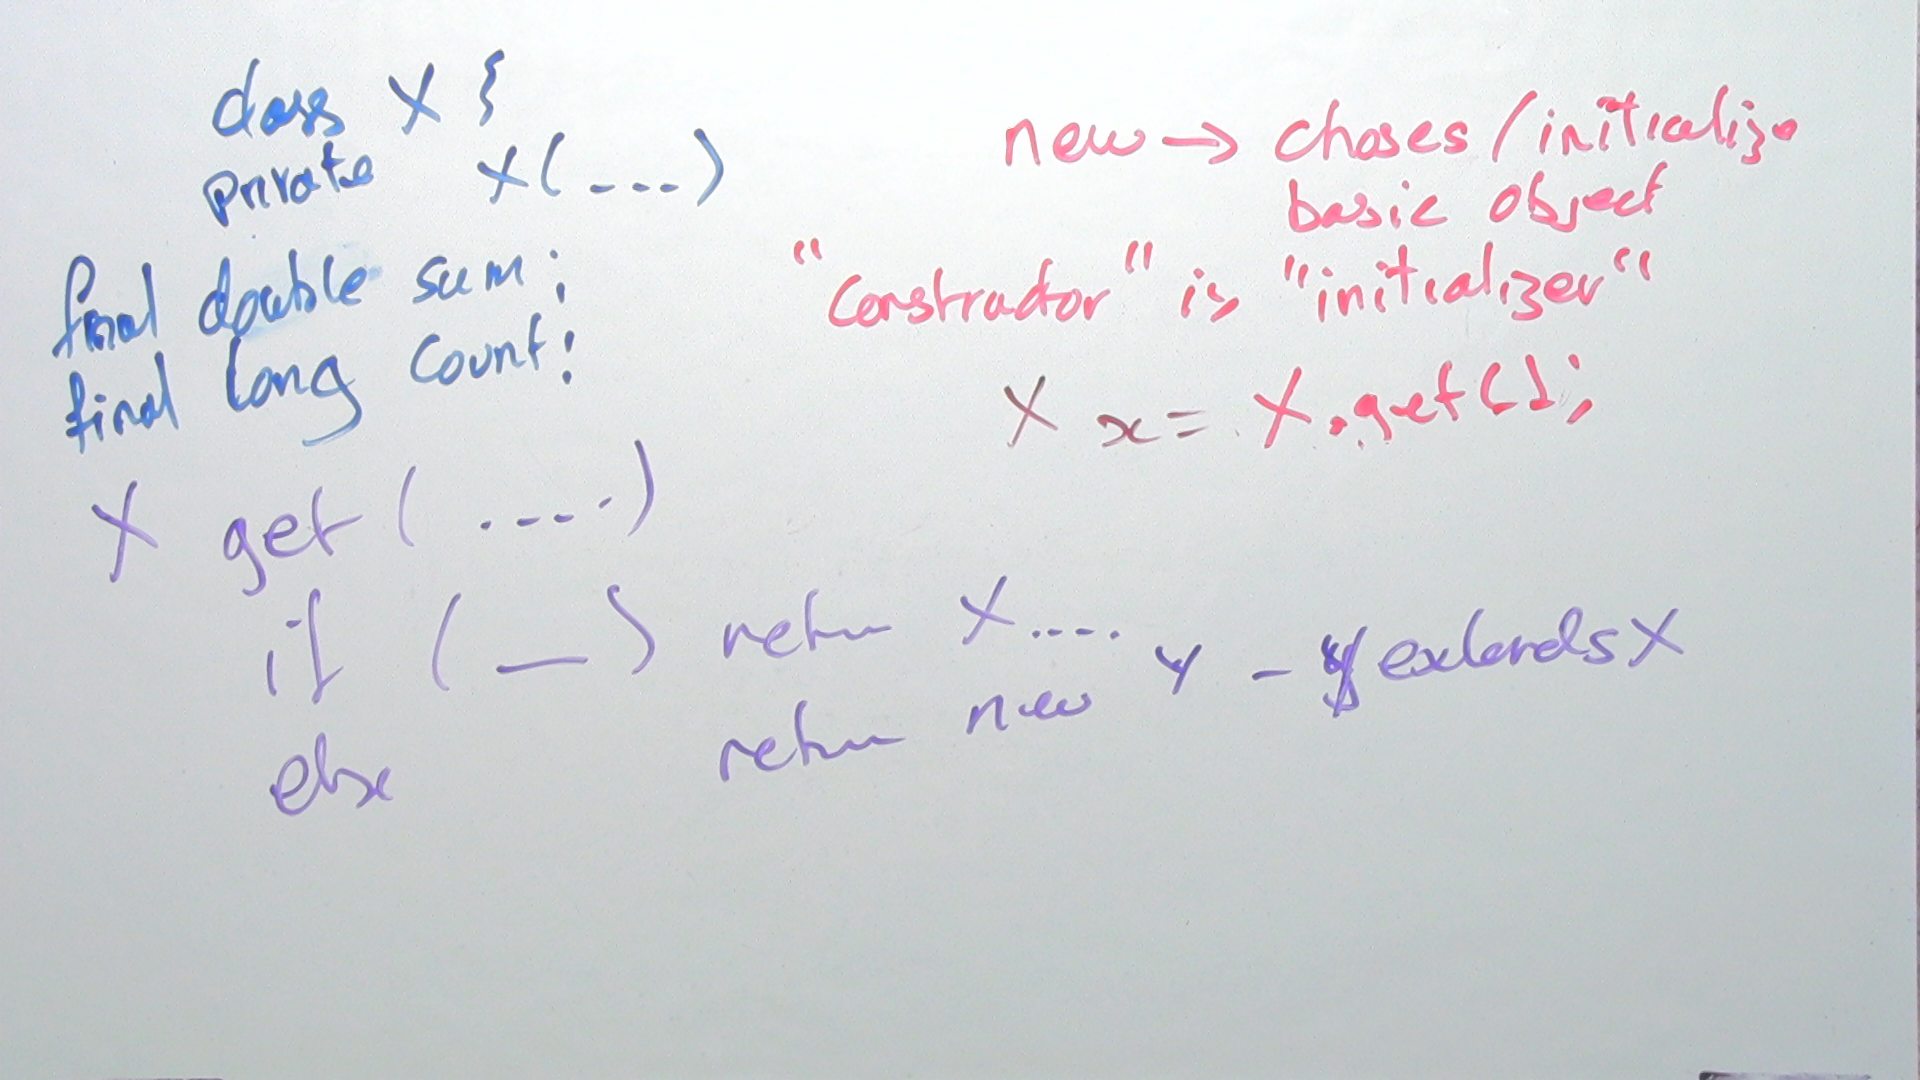 class X {
private X(----)
final double sum;
final long count;
X get(-----)
if (—) return X....
else return new Y - Y extends X
new → choses/initialize
basic object
"Constructor" is "initializer"
X x = X.get();